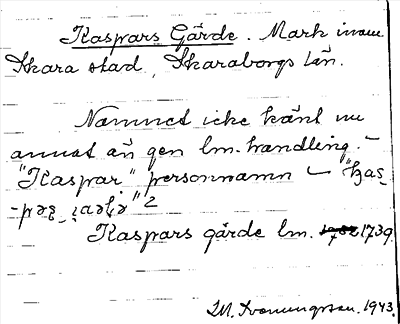 Kaspars Gärde. Mark inom
Skara stad, Skaraborgs län.
Namnet icke känt nu
annat än gen lm. handling. -
"Kaspar" personnamn
Kaspars gärde lm. 1739.
Ivarsson. 1943.